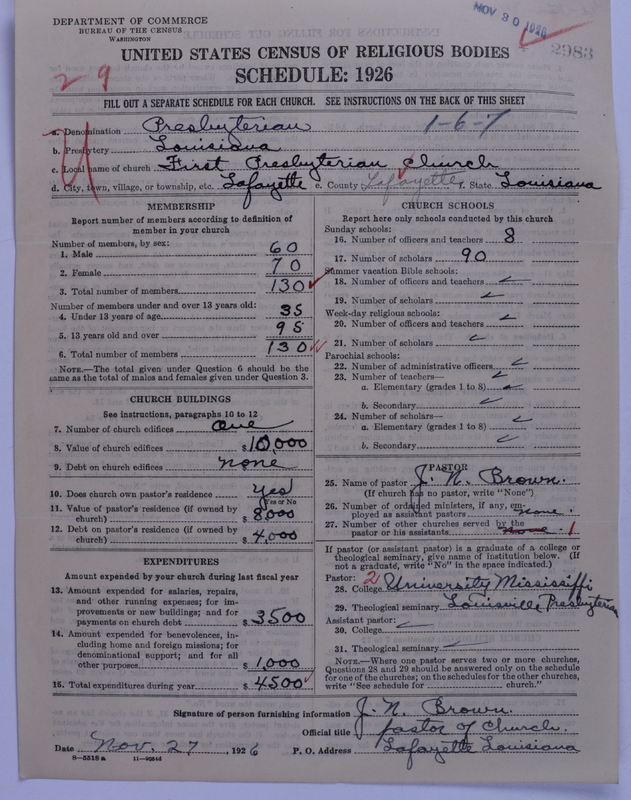 DEPARTMENT OF COMMERCE
BUREAU OF THE CENSUS
WASHINGTON
NOV 30 1926
2983
UNITED STATES CENSUS OF RELIGIOUS BODIES
SCHEDULE: 1926
29
FILL OUT A SEPARATE SCHEDULE FOR EACH CHURCH. SEE INSTRUCTIONS ON THE BACK OF THIS SHEET
a. Denomination Presbyterian 1-6-7
b. Presbytery Louisiana
c. Local name of church First Presbyterian Church
d. City, town, village, or township, etc. Lafayette e. County Lafayette, State Louisiana
MEMBERSHIP
Report number of members according to definition of
member in your church
Number of members, by sex:
1. Male 60
2. Female 70
3. Total number of members 130
Number of members under and over 13 years old:
4. Under 13 years of age 35
5. 13 years old and over 95
6. Total number of members 130
NOTE.—The total given under Question 6 should be the
same as the total of males and females given under Question 3.
CHURCH BUILDINGS
See instructions, paragraphs 10 to 12
7. Number of church edifices One
8. Value of church edifices $ 10,000
9. Debt on church edifices none
10. Does church own pastor's residence Yes
Yes or No
11. Value of pastor's residence (if owned by
church) $ 8,000
12. Debt on pastor's residence (if owned by
church) $ 4,000
EXPENDITURES
Amount expended by your church during last fiscal year
13. Amount expended for salaries, repairs,
and other running expenses; for im-
provements or new buildings; and for
payments on church debt $ 3500
14. Amount expended for benevolences, in-
cluding home and foreign missions; for
denominational support; and for all
other purposes $ 1,000
15. Total expenditures during year $ 4500
CHURCH SCHOOLS
Report here only schools conducted by this church
Sunday schools:
16. Number of officers and teachers 8
17. Number of scholars 90
Summer vacation Bible schools:
18. Number of officers and teachers
19. Number of scholars
Week-day religious schools:
20. Number of officers and teachers
21. Number of scholars
Parochial schools:
22. Number of administrative officers
23. Number of teachers—
a. Elementary (grades 1 to 8)
b. Secondary
24. Number of scholars—
a. Elementary (grades 1 to 8)
b. Secondary
PASTOR
25. Name of pastor J. N. Brown.
(If church has no pastor, write "None")
26. Number of ordained ministers, if any, em-
ployed as assistant pastors none.
27. Number of other churches served by the
pastor or his assistants none 1
If pastor (or assistant pastor) is a graduate of a college or
theological seminary, give name of institution below. (If
not a graduate, write "No" in the space indicated.)
Pastor: 2
28. College University Mississippi
29. Theological seminary Louisville Presbyterian
Assistant pastor:
30. College
31. Theological seminary
NOTE.—Where one pastor serves two or more churches,
Questions 28 and 29 should be answered only on the schedule
for one of the churches; on the schedules for the other churches,
write "See schedule for church."
Signature of person furnishing information J. N. Brown.
Official title pastor of Church.
Date Nov. 27, 1926 P. O. Address Lafayette Louisiana
8-5518 a